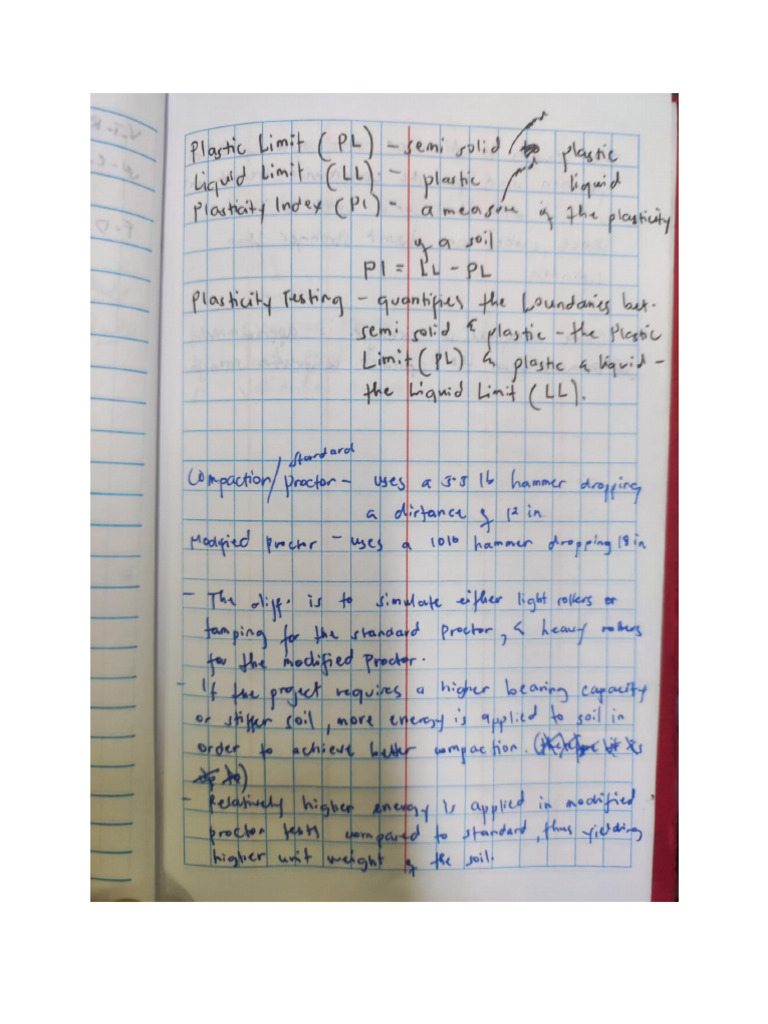 Plastic Limit (PL) - semi solid / plastic
Liquid Limit (LL) - plastic / liquid
Plasticity Index (PI) - a measure of the plasticity
of a soil
PI = LL - PL
Plasticity Testing - quantifies the boundaries bet.
semi solid & plastic - the Plastic
Limit (PL) & plastic & liquid -
the Liquid Limit (LL).
standard
Compaction/ proctor - uses a 5.5 lb hammer dropping
a distance of 12 in
Modified proctor - uses a 10lb hammer dropping 18 in
- The diff. is to simulate either light rollers or
tamping for the standard Proctor, & heavy rollers
for the modified Proctor.
- If the project requires a higher bearing capacity
or stiffer soil, more energy is applied to soil in
order to achieve better compaction.
- Relatively higher energy is applied in modified
proctor tests compared to standard, thus yielding
higher unit weight of the soil.